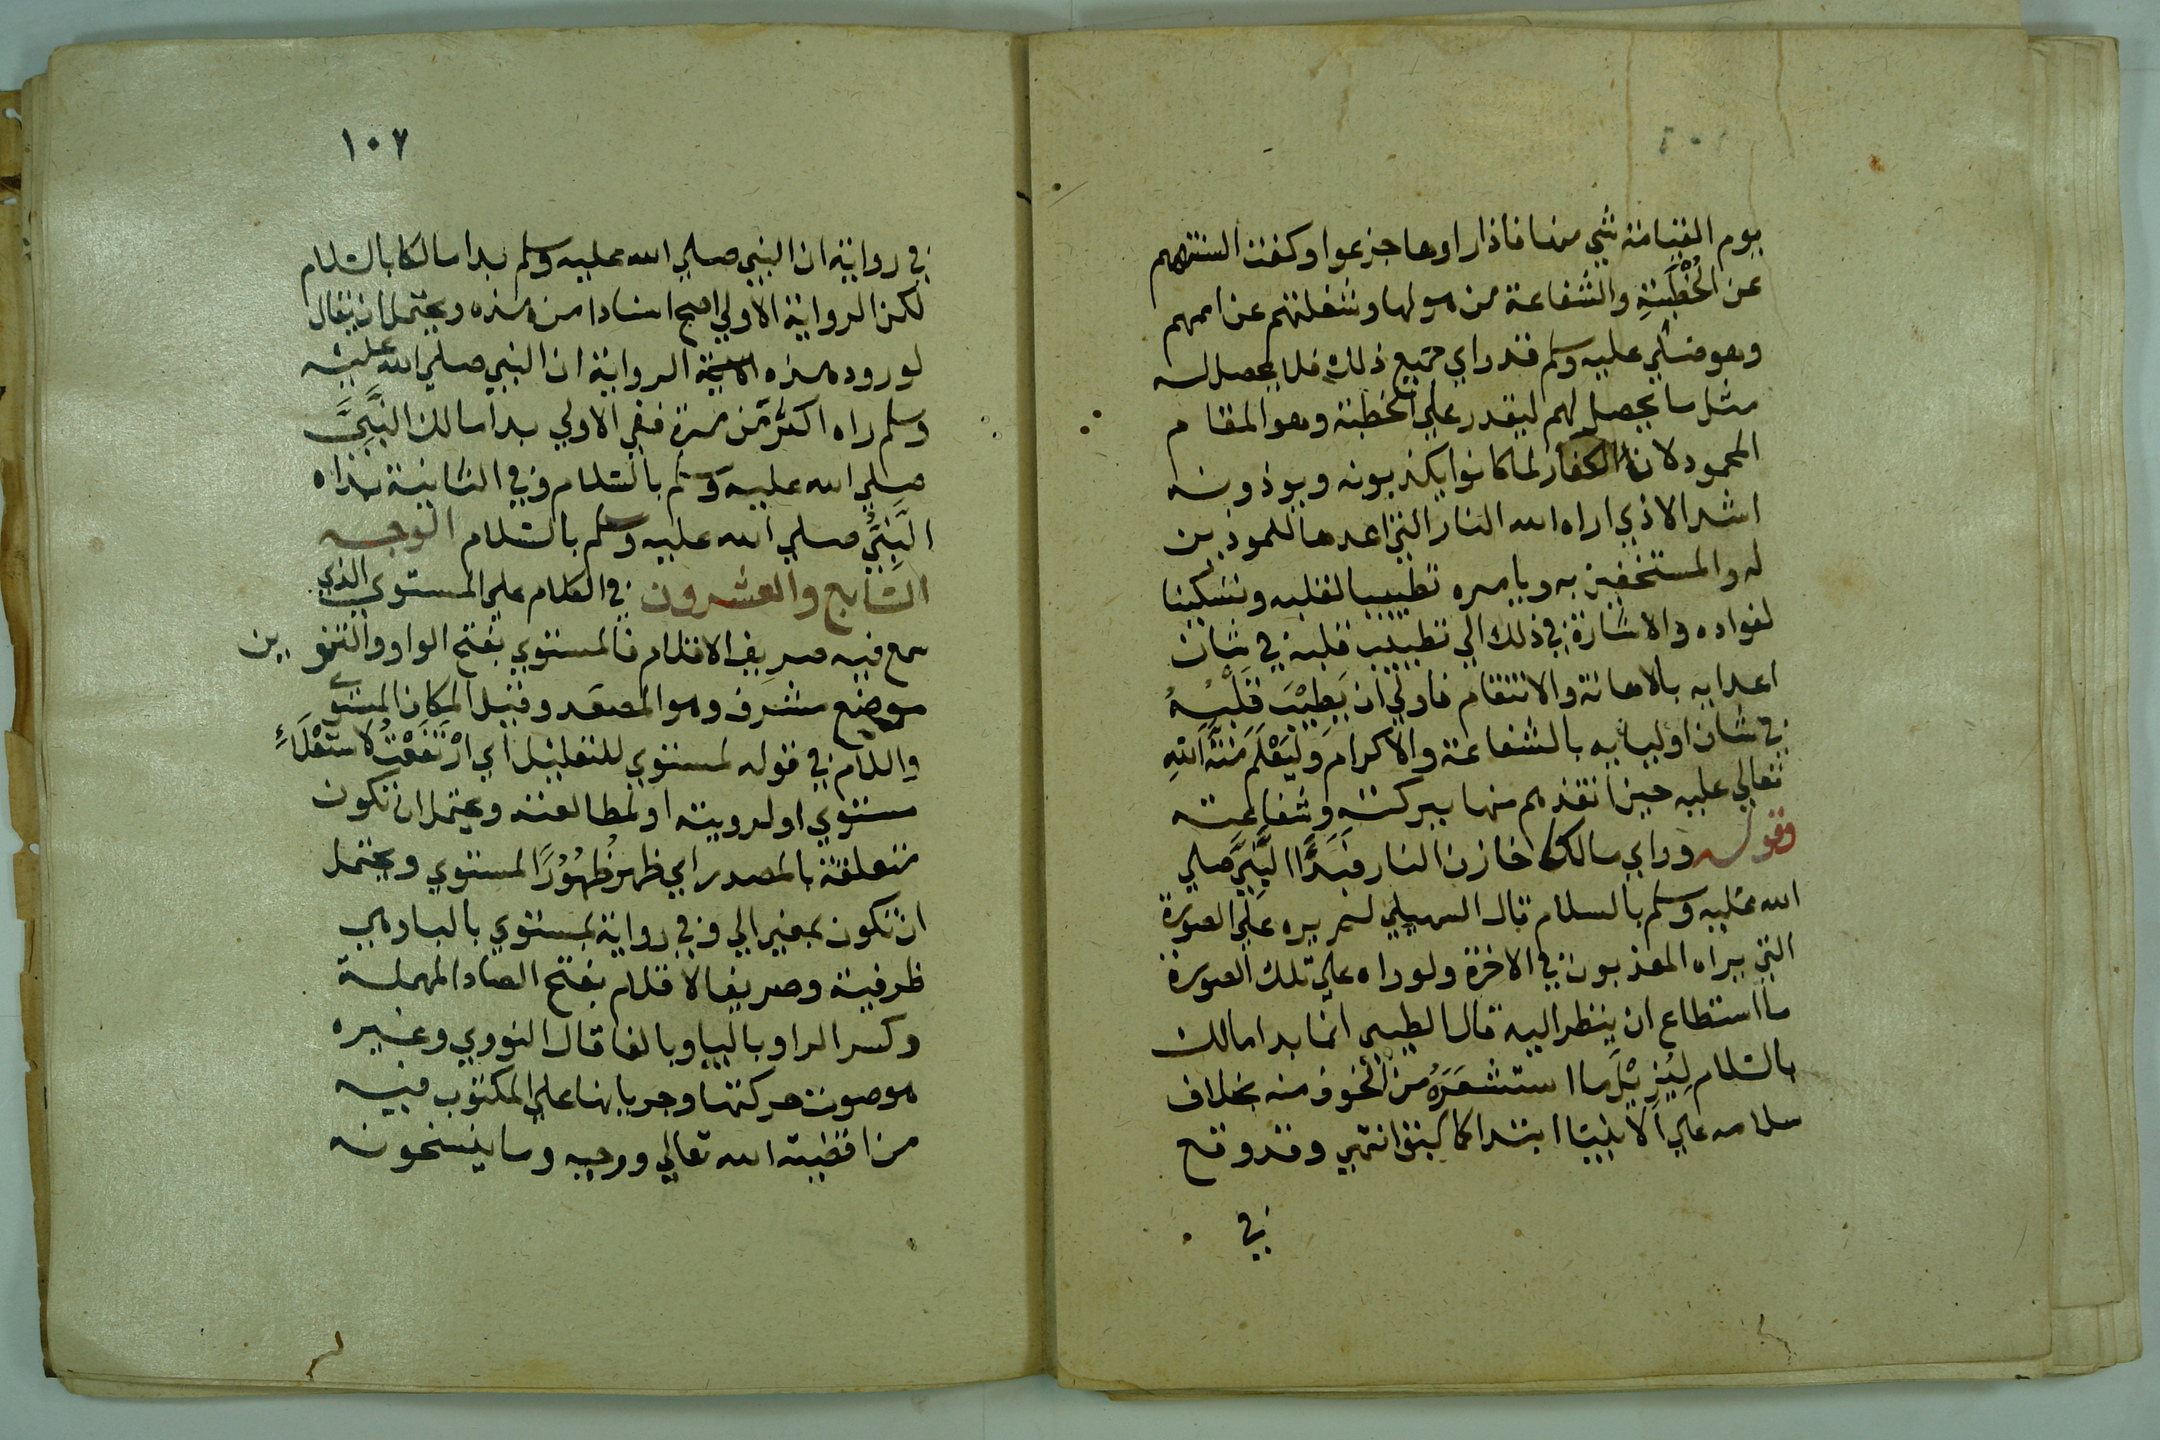 يوم القيامة شي منها فاذا راوها جزعوا وكفت السنتهم
عن الخُطْبَةِ والشفاعة من هولها وشغلتهم عن اممهم
وهو صلي عليه وسلم قد راي جميع ذلك فلا يحصل له
مثل ما يحصل لهم ليقدر علي الخطبة وهو المقام
المحمود لان الكفار لما كانوا يكذبونه ويوذونه
اشد الاذي اراه الله النار التي اعدها للموذين
له والمستخفين به وبامره تطييبا لقلبه وتسكينا
لفواده والاشارة في ذلك الي تطييب قلبه في شان
اعدايه بالاهانة والانتقام فاولي ان يَطِيْبَ قَلْبُهُ
في شان اوليايه بالشفاعة والاكرام وَليَعْلَمَ مَنَّةَ اللهِ
تعالي عليه حين انقذهم منها ببركته وشفاعته
وقوله وراي مالكا خازن النار فَبَدَأَ النَّبِيَّ صلي
الله عليه وسلم بالسلام قال السهيلي لم يره علي الصورة
التي يراه المعذبون في الاخرة ولو راه علي تلك الصورة
ما استطاع ان ينظر اليه قال الطيبى انما بدا مالك
بالسلام لِيُزِيْلَ ما استشعَرَهُ من الخوف منه بخلاف
سلامه علي الانبيا ابتدا كما سبق انتهي وقد وقع
في
١٠٧
في رواية ان النبي صلي الله عليه وسلم بدا مالكا بالسلام
لكن الرواية الاولي اصح اسنادا من هذه ويحتمل ان يقال
لورود هذه الرواية ان النبي صلي الله عليه
وسلم راه اكثر من مرة ففي الاولي بدا مالك النَّبِيَّ
صلي الله عليه وسلم بالسلام وفي الثانية بداه
النَّبِيُّ صلي الله عليه وسلم بالسلام الوجه
السابع والعشرون في الكلام علي المستوي الذي
سمع فيه صريف الاقلام فالمستوي بفتح الواو والتنوين
موضع مشرف وهو المصعد وقيل المكان المستوي
واللام في قوله لمستوي للتعليل اي ارْتَفَعْتُ لاستعْلَاءِ
مستوي او لرويته او لمطالعته ويحتمل ان تكون
متعلقة بالمصدر اي ظهرتُ ظُهُوْرًا لمستوي ويحتمل
ان تكون بمعني الي وفي رواية بمستوي بالباء وهي
ظرفية وصريف الاقلام بفتح الصاد المهملة
وكسر الرا وباليا وبالفا قال النووي وغيره
هو صوت حركتها وجريانها علي المكتوب فيه
من اقضية الله تعالي ووحيه وما ينسخونه